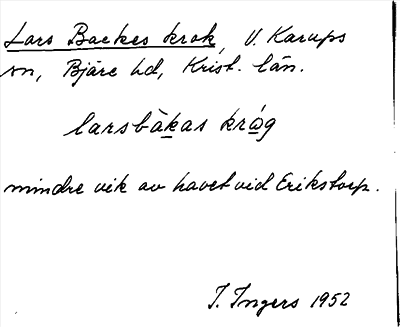 Lars Backes krok, V. Karups
sn, Bjäre hd, Krist. län.
larsbàkas kråg
mindre vik av havet vid Erikstorp.
I. Ingers 1952